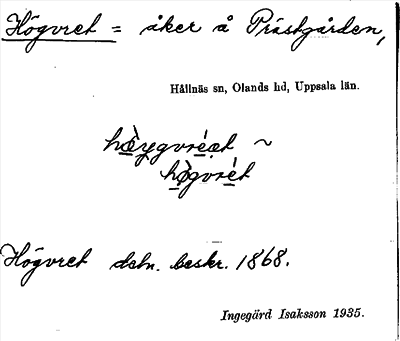 Högvret = åker å Prästgården,
Hållnäs sn, Olands hd, Uppsala län.
hæ̀ygvréæt ~
hø̀gvrét
Högvret dstn. beskr. 1868.
Ingegärd Isaksson 1935.